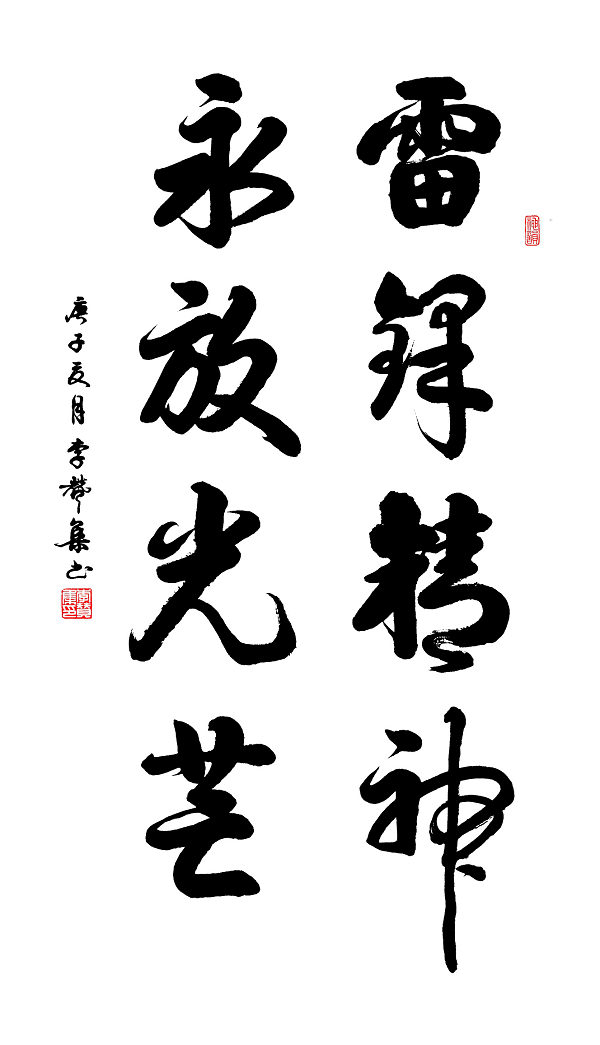 雷锋精神
永放光芒
庚子夏月李赞集书